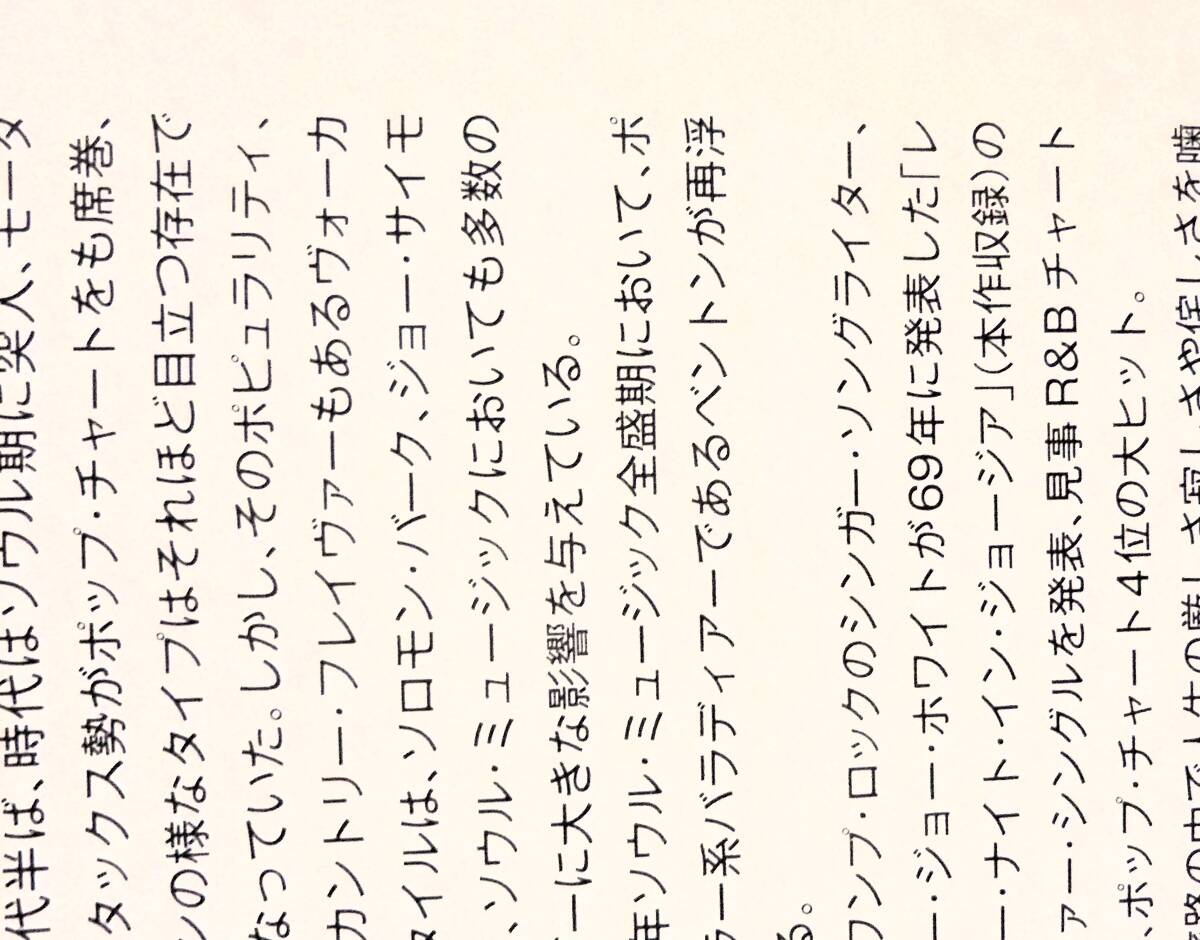 代半ば、時代はソウル期に突入、モータ
タックス勢がポップ・チャートをも席巻、
ンの様なタイプはそれほど目立つ存在で
なっていた。しかし、そのポピュラリティ、
カントリー・フレイヴァーもあるヴォーカ
タイルは、ソロモン・バーク、ジョー・サイモ
、ソウル・ミュージックにおいても多数の
ーに大きな影響を与えている。
年ソウル・ミュージック全盛期において、ポ
ラー系バラディアーであるベントンが再浮
る。
ワンプ・ロックのシンガー・ソングライター、
ー・ジョー・ホワイトが69年に発表した「レ
ー・ナイト・イン・ジョージア」(本作収録)の
ァー・シングルを発表、見事 R&B チャート
、ポップ・チャート4位の大ヒット。
の中で人生の厳しさ寂しさや侘しさを噛